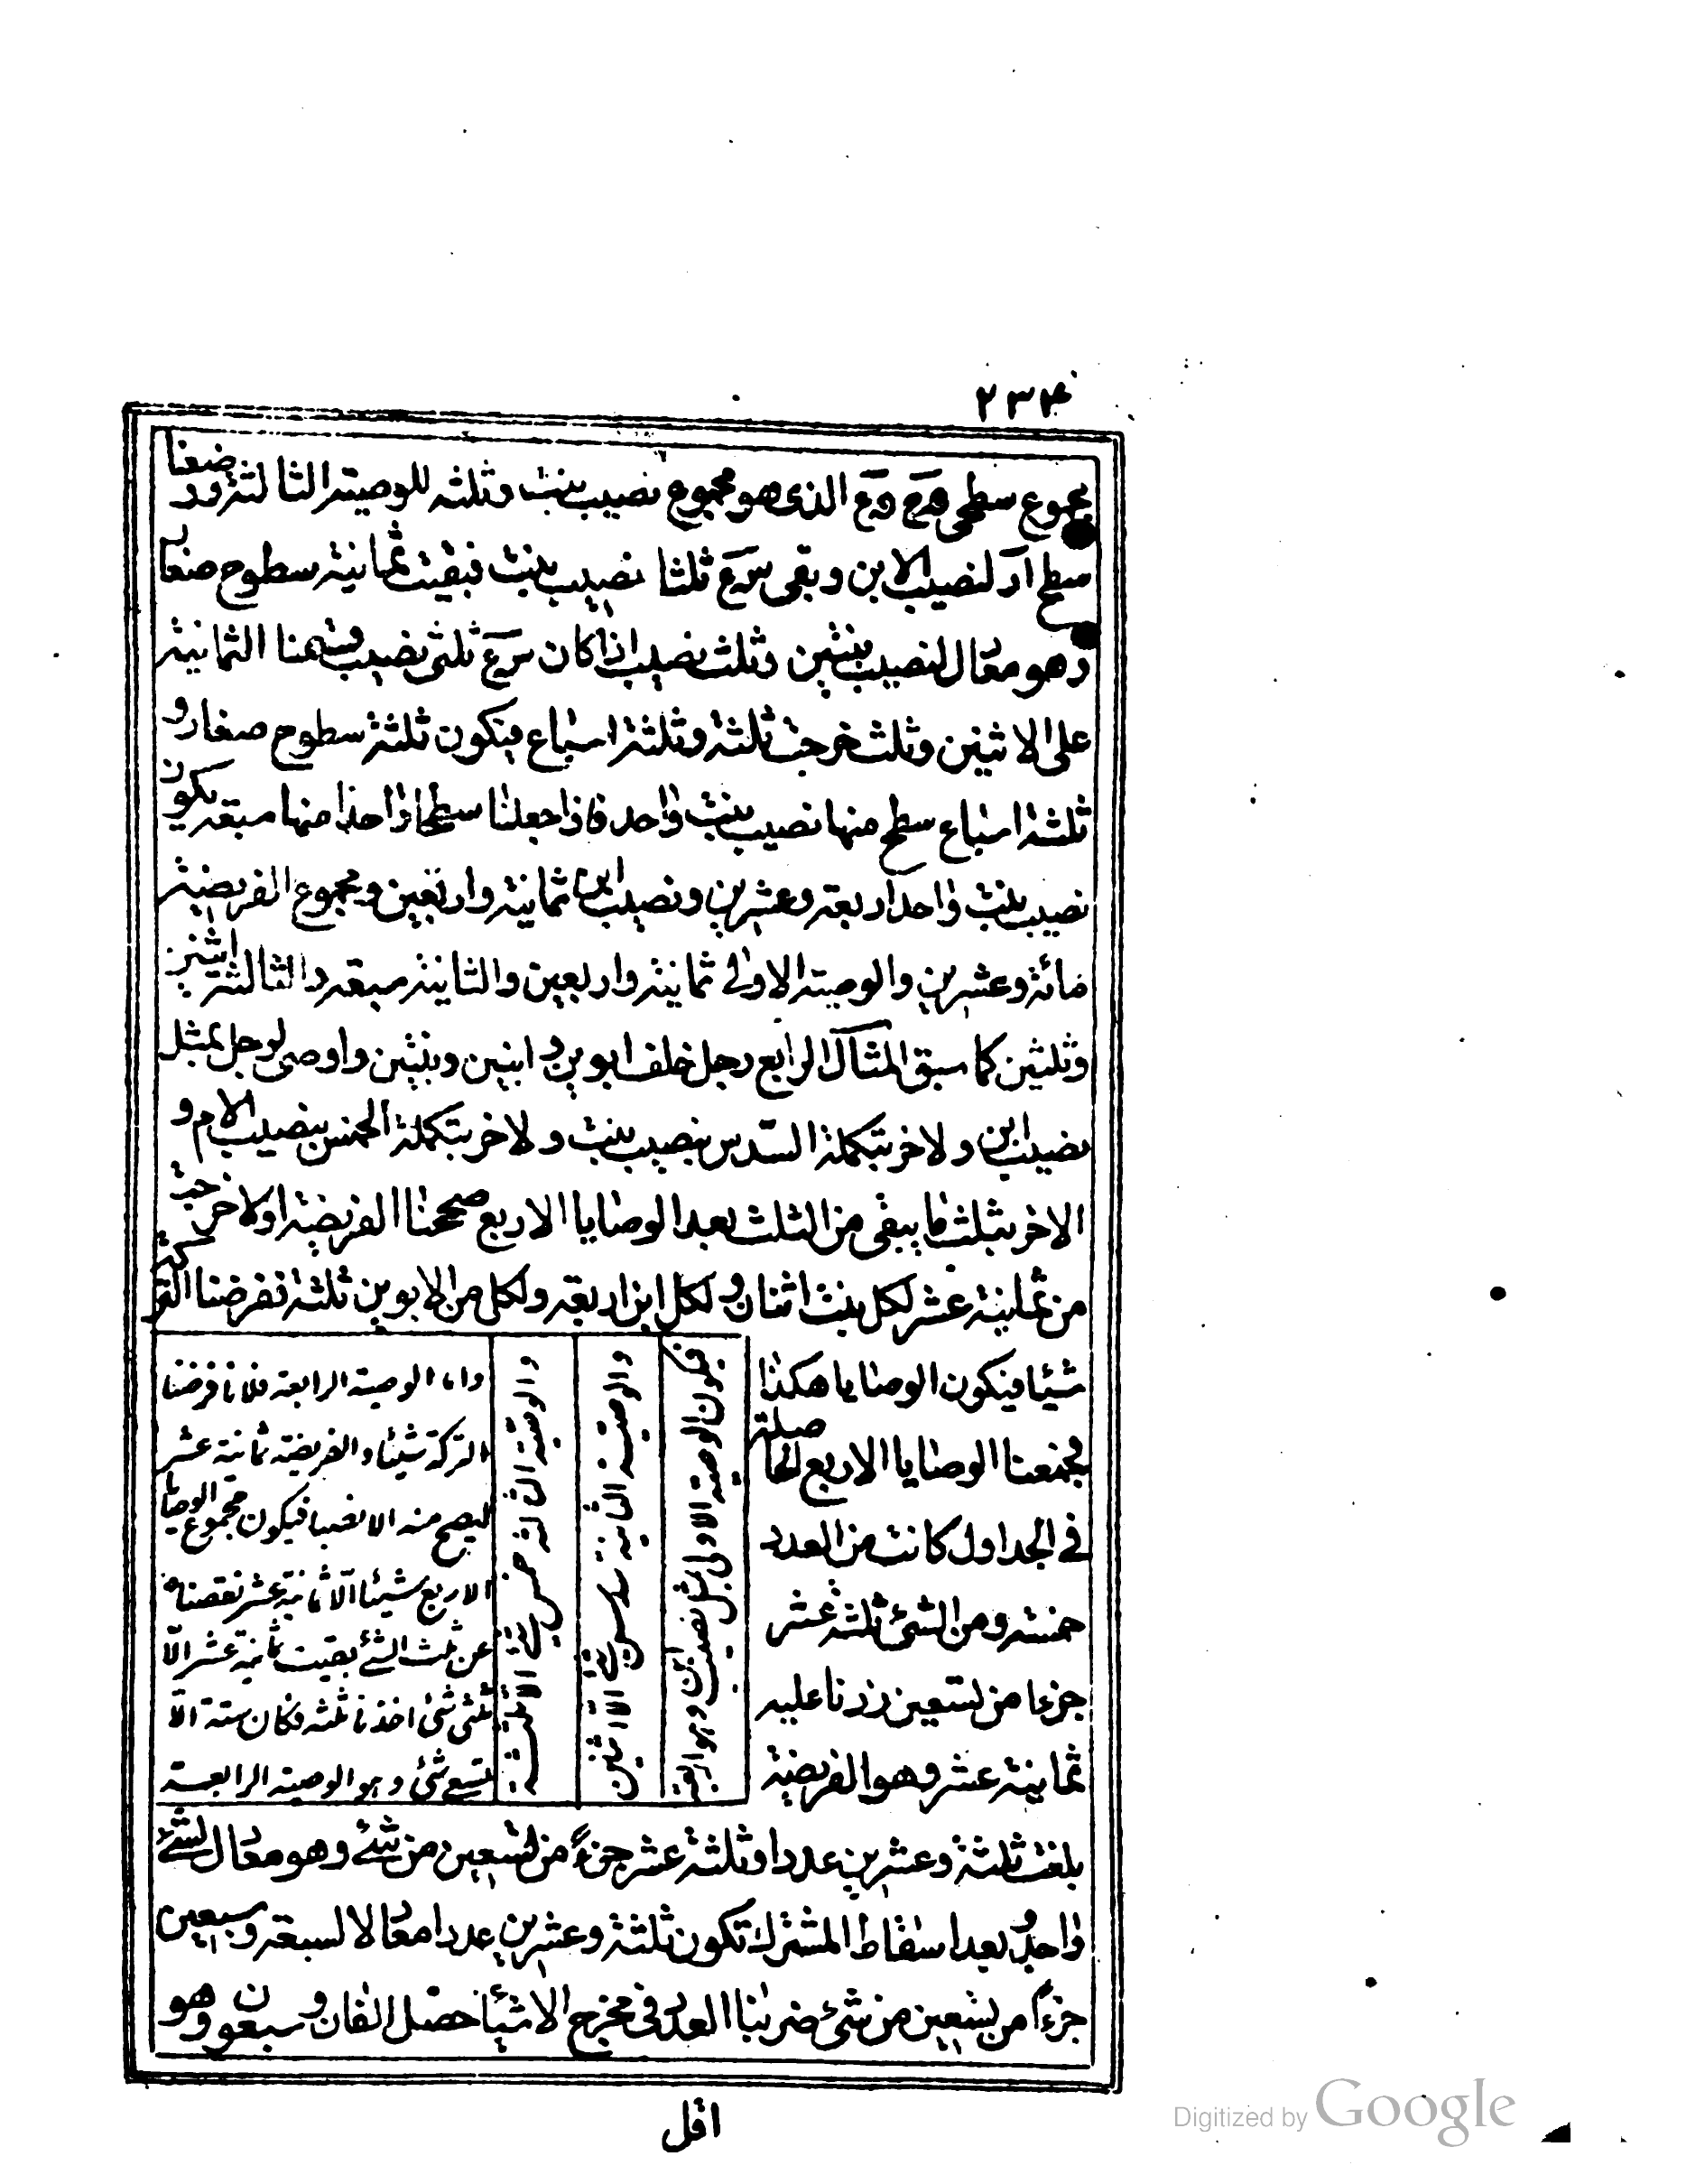 ۲۳۴
مجموع سطحى الذى هو مجموع نصيب بنت وثلثه للوصية الثالثة وقد وضعنا
سطح آر لنصيب الابن وبقى ثلثا نصيب بنت فبقيت ثمانية سطوح صغار
وهو معادل لنصيب بنتين وثلث نصيب اذا كان ثلثى نصيب قسمنا الثمانية
على الاثنين وثلث خرجت ثلثة وثلثة اسباع فيكون ثلثة سطوح صغار و
ثلثة اسباع سطح منها نصيب بنت واحد فاذا جعلنا سطحا واحدا منها سبعة يكون
نصيب بنت واحد اربعة وعشرين ونصيب ابن ثمانية واربعين ومجموع الفريضة
مائة وعشرين والوصية الاولى ثمانية واربعين والثانية سبعة والثالثة اثنين
وثلثين كما سبق المثال الرابع رجل خلف ابوين و ابنين وبنتين واوصى لرجل بمثل
نصيب ابن ولاخر بتكملة السدس بنصيب بنت ولاخر بتكملة الخمس بنصيب الام و
الاخر بثلث ما يبقى من الثلث بعد الوصايا الاربع صححنا الفريضة اولا خرجت
من ثمانية عشر لكل بنت اثنان و لكل ابن اربعة ولكل من الابوين ثلثة ففرضنا التركة
شيئا فيكون الوصايا هكذا
فجمعنا الوصايا الاربع الحاصلة
فى الجداول كانت من العدد
خمسة ومن الشئ ثلثة عشر
جزءا من تسعين زدنا عليه
ثمانية عشر وهو الفريضة
فيكون الوصية الاولى مثل نصيب ابن وهو اربعة
والوصية الثانية سدس شئ الا اثنين
والوصية الثالثة خمس شئ الا ثلثة
واما الوصية الرابعة فلانا فرضنا
التركة شيئا والفريضة ثمانية عشر
ليصح منه الانصبا فيكون مجموع الوصايا
الاربع شيئا الا ثمانية عشر نقصناه
عن ثلث الشئ بقيت ثمانية عشر الا
ثلثى شئ اخذنا ثلثه فكان ستة الا
تسع شئ وهو الوصية الرابعة
بلغت ثلثة وعشرين عددا وثلثة عشر جزءً من تسعين من شئ وهو معادل لشئ
واحد و بعد اسقاط المشترك تكون ثلثة وعشرين عددا معادلا لسبعة وسبعين
جزءا من تسعين من شئ ضربنا العدد فى مخرج الاشيا حصل الفان و سبعون وهو
اقل
Digitized by Google